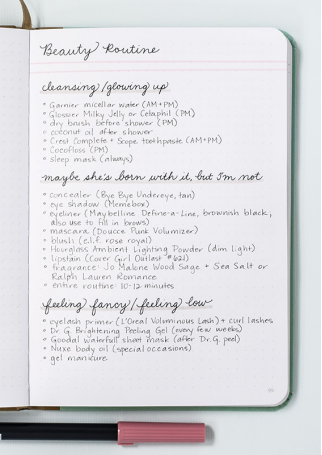 Beauty Routine
cleansing/glowing up
° Garnier micellar water (AM+PM)
° Glossier Milky Jelly or Cetaphil (PM)
° dry brush before shower (PM)
° coconut oil after shower
° Crest Complete + Scope toothpaste (AM+PM)
° CocoFloss (PM)
° sleep mask (always)
maybe she's born with it, but I'm not
° concealer (Bye Bye Undereye, tan)
° eye shadow (Memebox)
° eyeliner (Maybelline Define-a-Line, brownish black;
also use to fill in brows)
° mascara (Doucce Punk Volumizer)
° blush (e.l.f. rose royal)
° Hourglass Ambient Lighting Powder (dim light)
° lipstain (Cover Girl Outlast #621)
° fragrance: Jo Malone Wood Sage + Sea Salt or
Ralph Lauren Romance
° entire routine: 10-12 minutes
feeling fancy/feeling low
° eyelash primer (L'Oreal Voluminous Lash) + curl lashes
° Dr. G. Brightening Peeling Gel (every few weeks)
° Goodal waterfull sheet mask (after Dr. G. peel)
° Nuxe body oil (special occasions)
° gel manicure